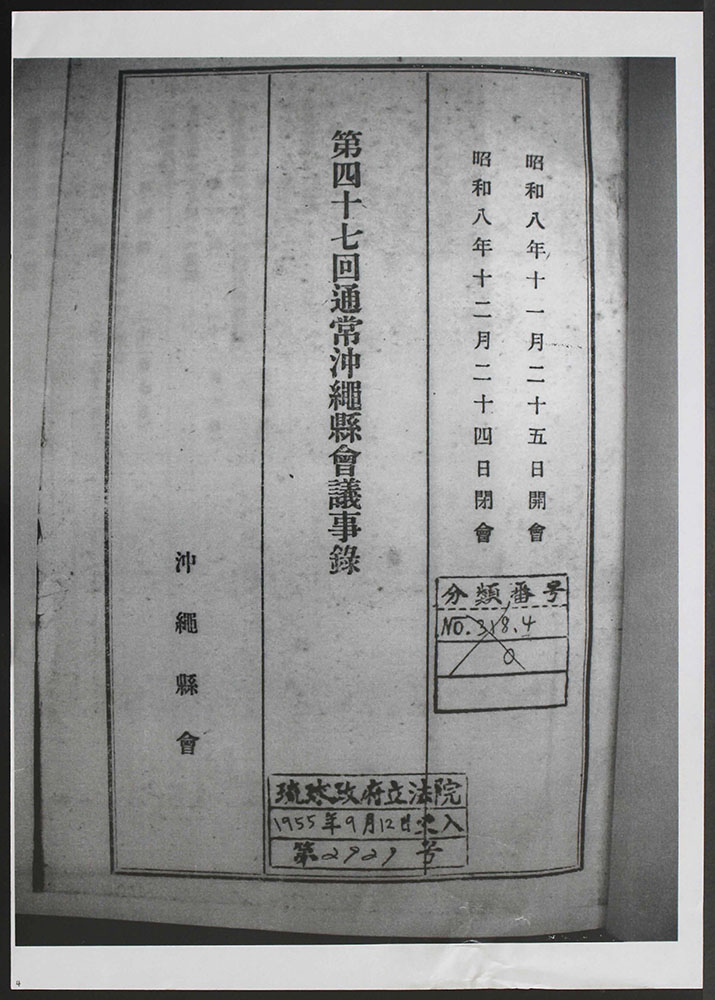 昭和八年十一月二十五日開會
昭和八年十二月二十四日閉會
第四十七回通常沖繩縣會議事錄
沖繩縣會
分類番号
NO. 318.4
0
琉球政府立法院
1955年9月12日受入
第2929号